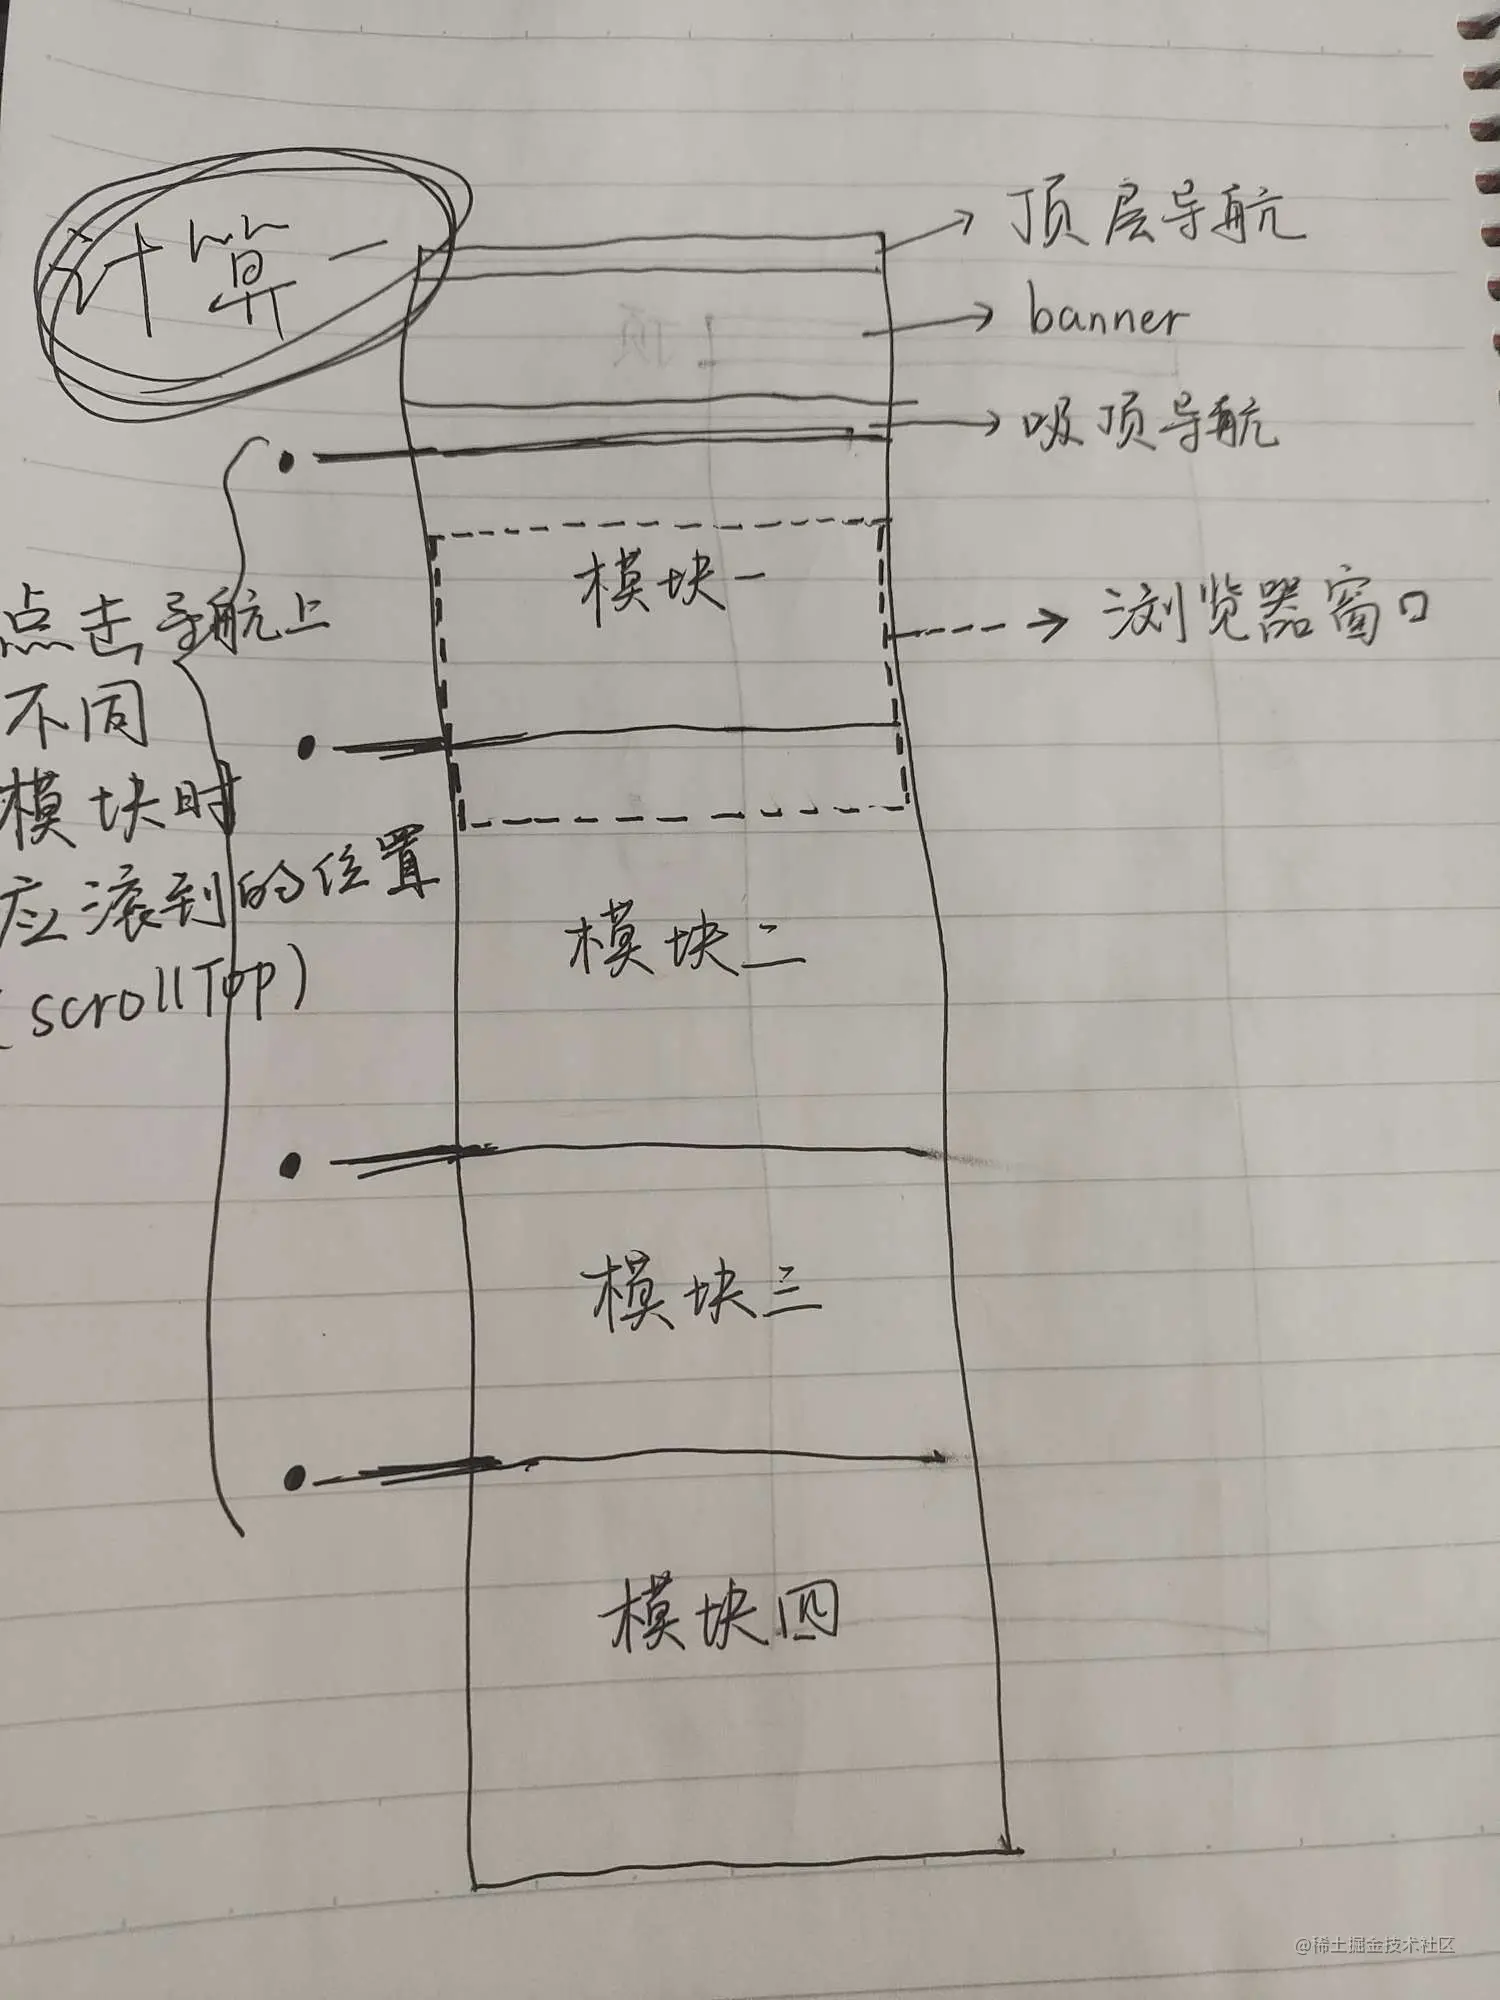 计算一
顶层导航
banner
吸顶导航
模块一
浏览器窗口
点击导航上
不同
模块时
应滚到的位置
(scrollTop)
模块二
模块三
模块四
@稀土掘金技术社区